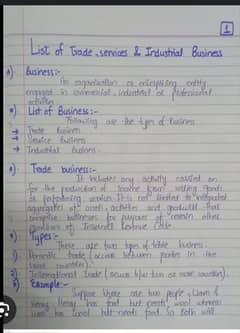 1
List of Trade, services & Industrial Business
Business:-
An organization or enterprising entity
engaged in commercial, industrial or professional
activities
List of Business:-
Following are the types of business
→ Trade Business
→ Service Business
→ Industrial Business.
Trade business:-
It includes any activity carried on
for the production of income from selling goods
or performing services. It is not limited to integrated
aggregates of assets, activities and goodwill that
comprise businesses for purposes of certain other
provisions of Internal Revenue Code
Types:-
There are two types of trade business.
1) Domestic trade (occurs between parties in the
same country).
2) International Trade (occurs b/w two or more countries).
Example:-
Suppose there are two people, Liam &
Henry. Henry has food but needs wood whereas
Liam has wood but needs food. So both will